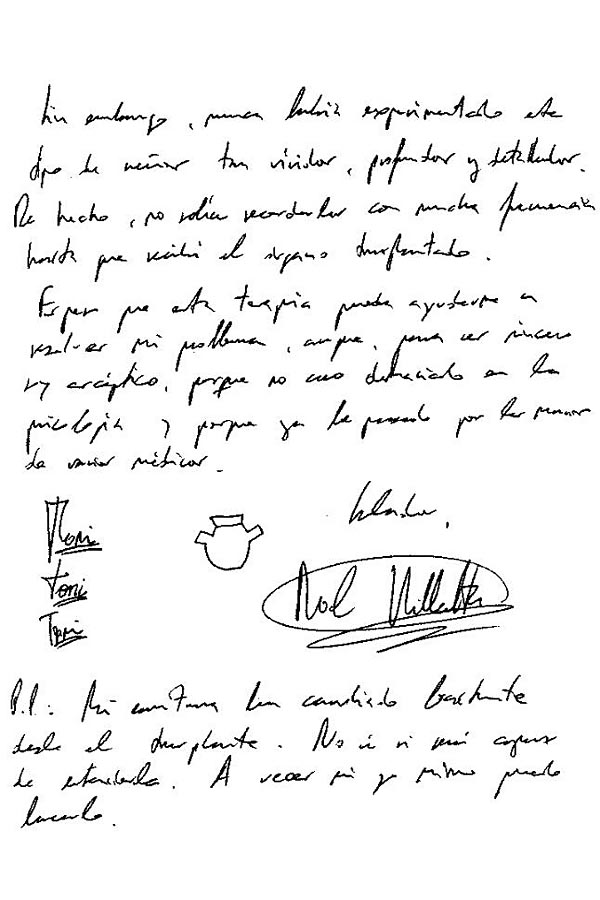 Sin embargo, nunca había experimentado este
tipo de sueños tan vívidos, profundos y detallados.
De hecho, no solía recordarlos con mucha frecuencia
hasta que recibí el órgano trasplantado.
Espero que esta terapia pueda ayudarme a
resolver mi problema, aunque, para ser sincero
soy escéptico, porque no creo demasiado en la
psicología y porque ya he pasado por las manos
de varios médicos.
Saludos,
Toni
Toni
Toni
Noel
P.D.: Mi escritura ha cambiado bastante
desde el trasplante. No sé si será capaz
de entenderla. A veces ni yo mismo puedo
hacerlo.